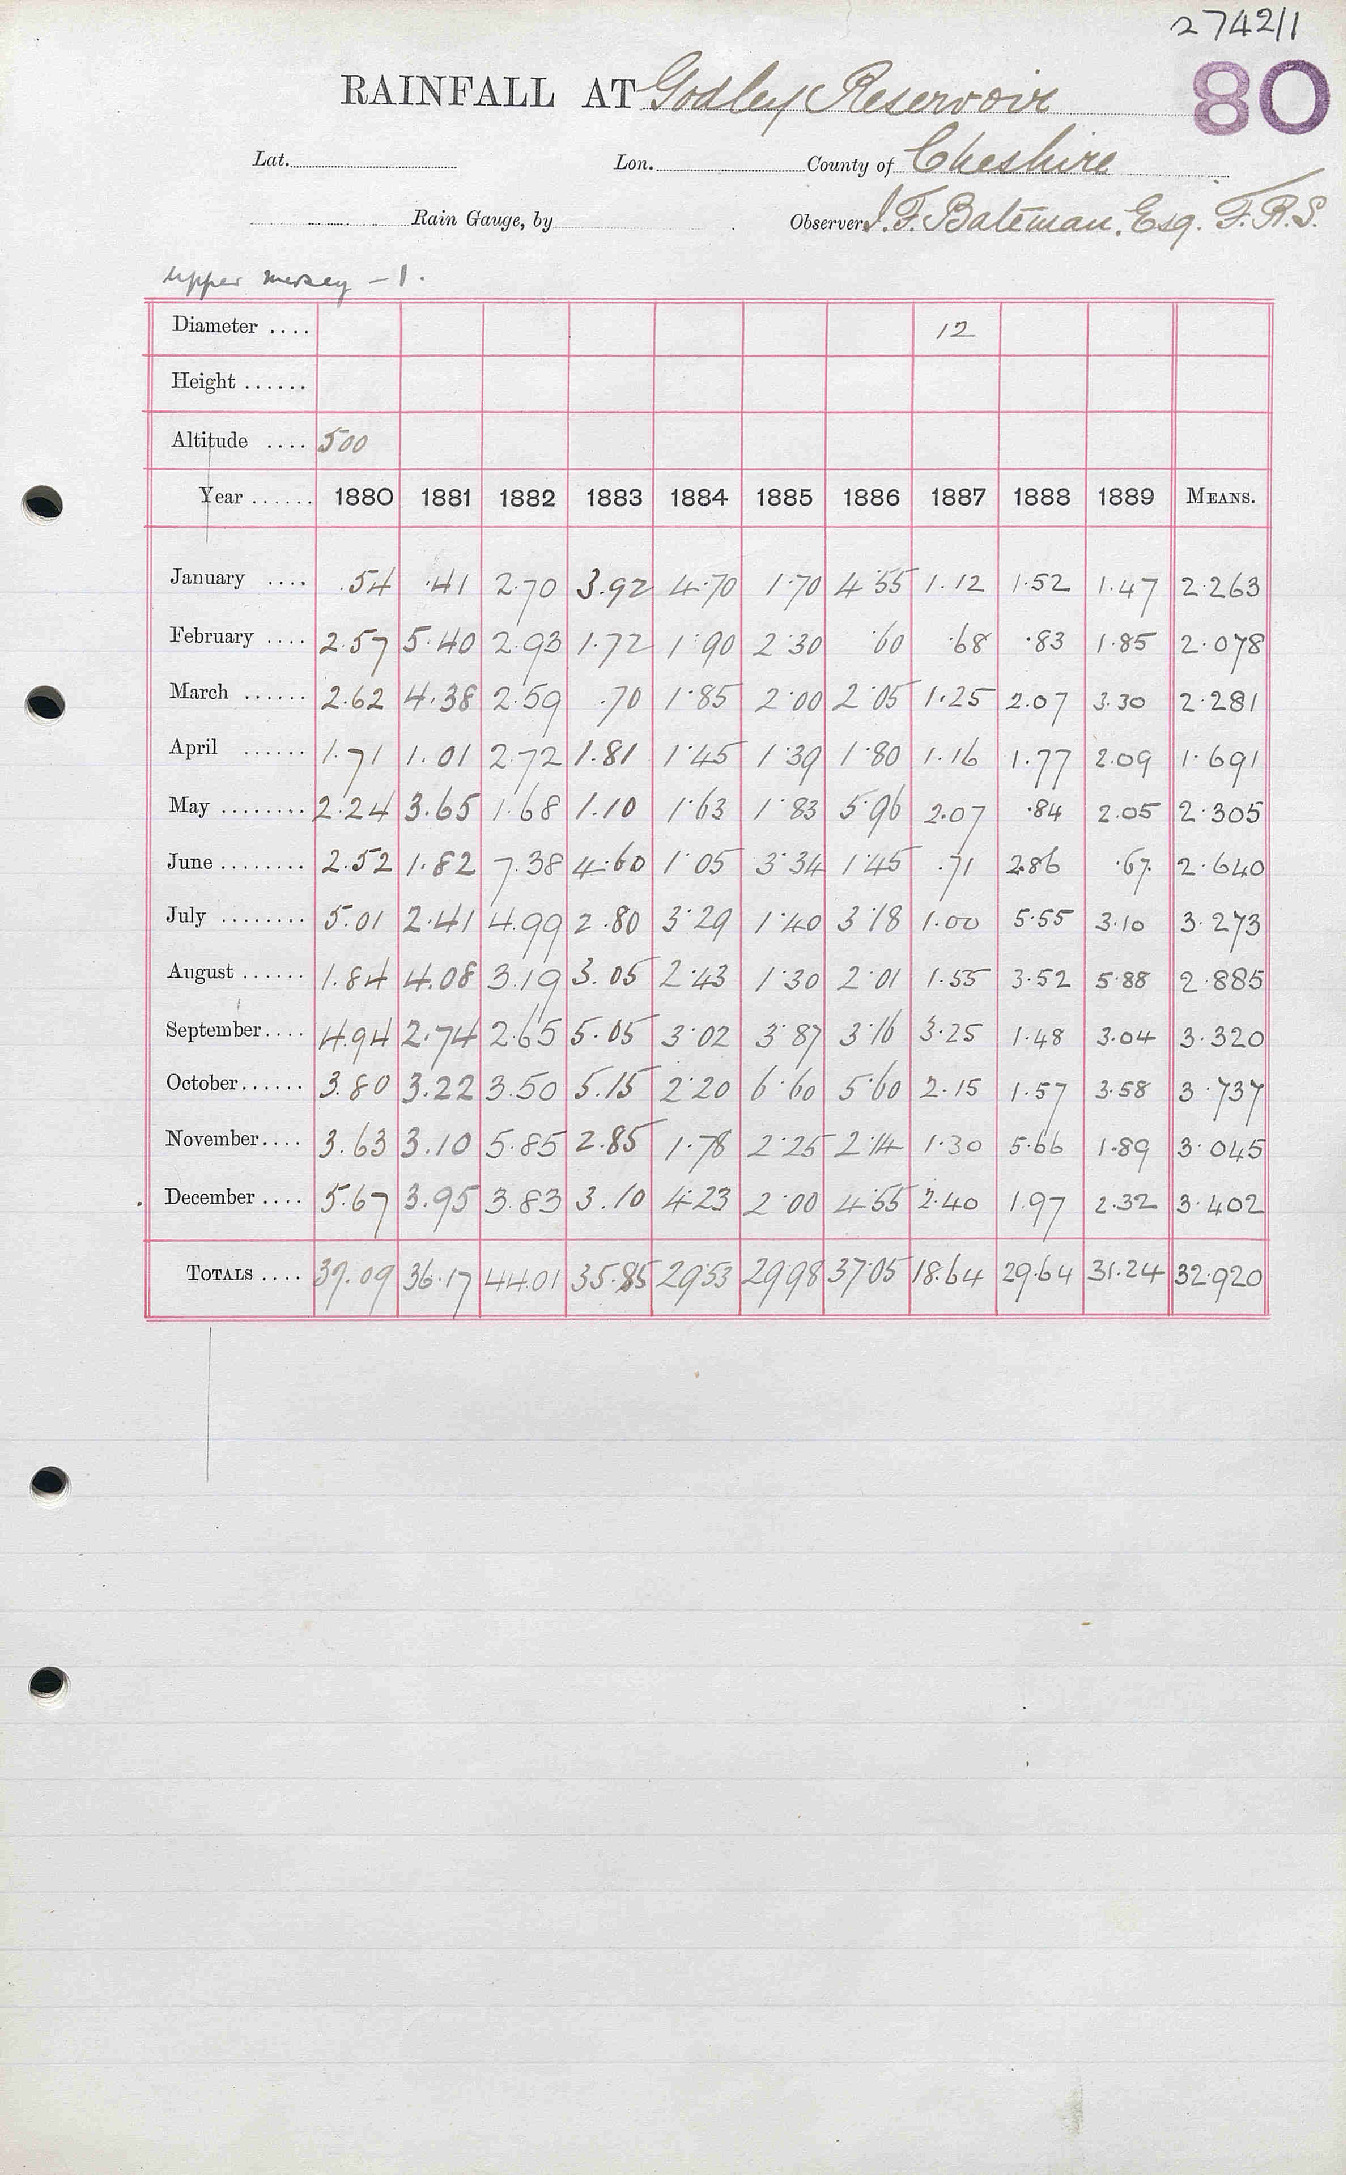 2742/1
80
RAINFALL AT Godley Reservoir
Lat. Lon. County of Cheshire
Rain Gauge, by Observer J. F. Bateman, Esq. F.R.S.
Upper Mersey - 1.
Diameter .... 12
Height ......
Altitude .... 500
Year ...... 1880 1881 1882 1883 1884 1885 1886 1887 1888 1889 MEANS.
January .... .54 .41 2.70 3.92 4.70 1.70 4.55 1.12 1.52 1.47 2.263
February .... 2.57 5.40 2.93 1.72 1.90 2.30 .60 .68 .83 1.85 2.078
March ...... 2.62 4.38 2.59 .70 1.85 2.00 2.05 1.25 2.07 3.30 2.281
April ...... 1.71 1.01 2.72 1.81 1.45 1.39 1.80 1.16 1.77 2.09 1.691
May ........ 2.24 3.65 1.68 1.10 1.63 1.83 5.96 2.07 .84 2.05 2.305
June ........ 2.52 1.82 7.38 4.60 1.05 3.34 1.45 .71 2.86 .67 2.640
July ........ 5.01 2.41 4.99 2.80 3.29 1.40 3.18 1.00 5.55 3.10 3.273
August ...... 1.84 4.08 3.19 3.05 2.43 1.30 2.01 1.55 3.52 5.88 2.885
September.... 4.94 2.74 2.65 5.05 3.02 3.87 3.16 3.25 1.48 3.04 3.320
October...... 3.80 3.22 3.50 5.15 2.20 6.60 5.60 2.15 1.57 3.58 3.737
November.... 3.63 3.10 5.85 2.85 1.78 2.25 2.14 1.30 5.66 1.89 3.045
December .... 5.67 3.95 3.83 3.10 4.23 2.00 4.55 2.40 1.97 2.32 3.402
TOTALS .... 37.09 36.17 44.01 35.85 29.53 29.98 37.05 18.64 29.64 31.24 32.920